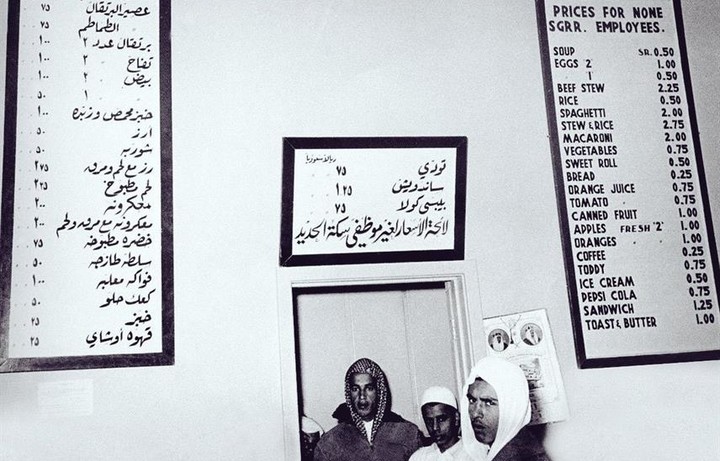 عصير البرتقال ٧٥
〃 الطماطم ٧٥
برتقال عدد ٢ ١٠٠
تفاح 〃 ٢ ١٠٠
بيض 〃 ٢ ١٠٠
〃 〃 ١ ٥٠
خبز محمص وزبده ١٠٠
ارز ٥٠
شوربه ٥٠
رز مع لحم ومرق ٢٧٥
لحم مطبوخ ٢٢٥
معكرونه ٢٠٠
معكرونه مع مرق ولحم ٢٠٠
خضره مطبوخه ٧٥
سلطه طازجه ٥٠
فواكه معلبه ١٠٠
كعك حلو ٥٠
خبز ٢٥
قهوه أو شاي ٢٥
ريال سعوديا
تودي ٧٥
ساندويش ١٢٥
بيبسي كولا ٧٥
لائحة الاسعار لغير موظفي سكة الحديد
PRICES FOR NONE
SGRR. EMPLOYEES.
SOUP SR. 0.50
EGGS "2" 1.00
"1" 0.50
BEEF STEW 2.25
RICE 0.50
SPAGHETTI 2.00
STEW & RICE 2.75
MACARONI 2.00
VEGETABLES 0.75
SWEET ROLL 0.50
BREAD 0.25
ORANGE JUICE 0.75
TOMATO " 0.75
CANNED FRUIT 1.00
APPLES FRESH "2" 1.00
ORANGES " " 1.00
COFFEE 0.25
TODDY 0.75
ICE CREAM 0.50
PEPSI COLA 0.75
SANDWICH 1.25
TOAST & BUTTER 1.00